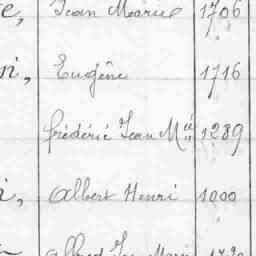 e, Jean Marie 1706
ni, Eugène 1716
frédéric Jean M<sup>ie</sup> 1289
i, Albert Henri 1000
Alfred